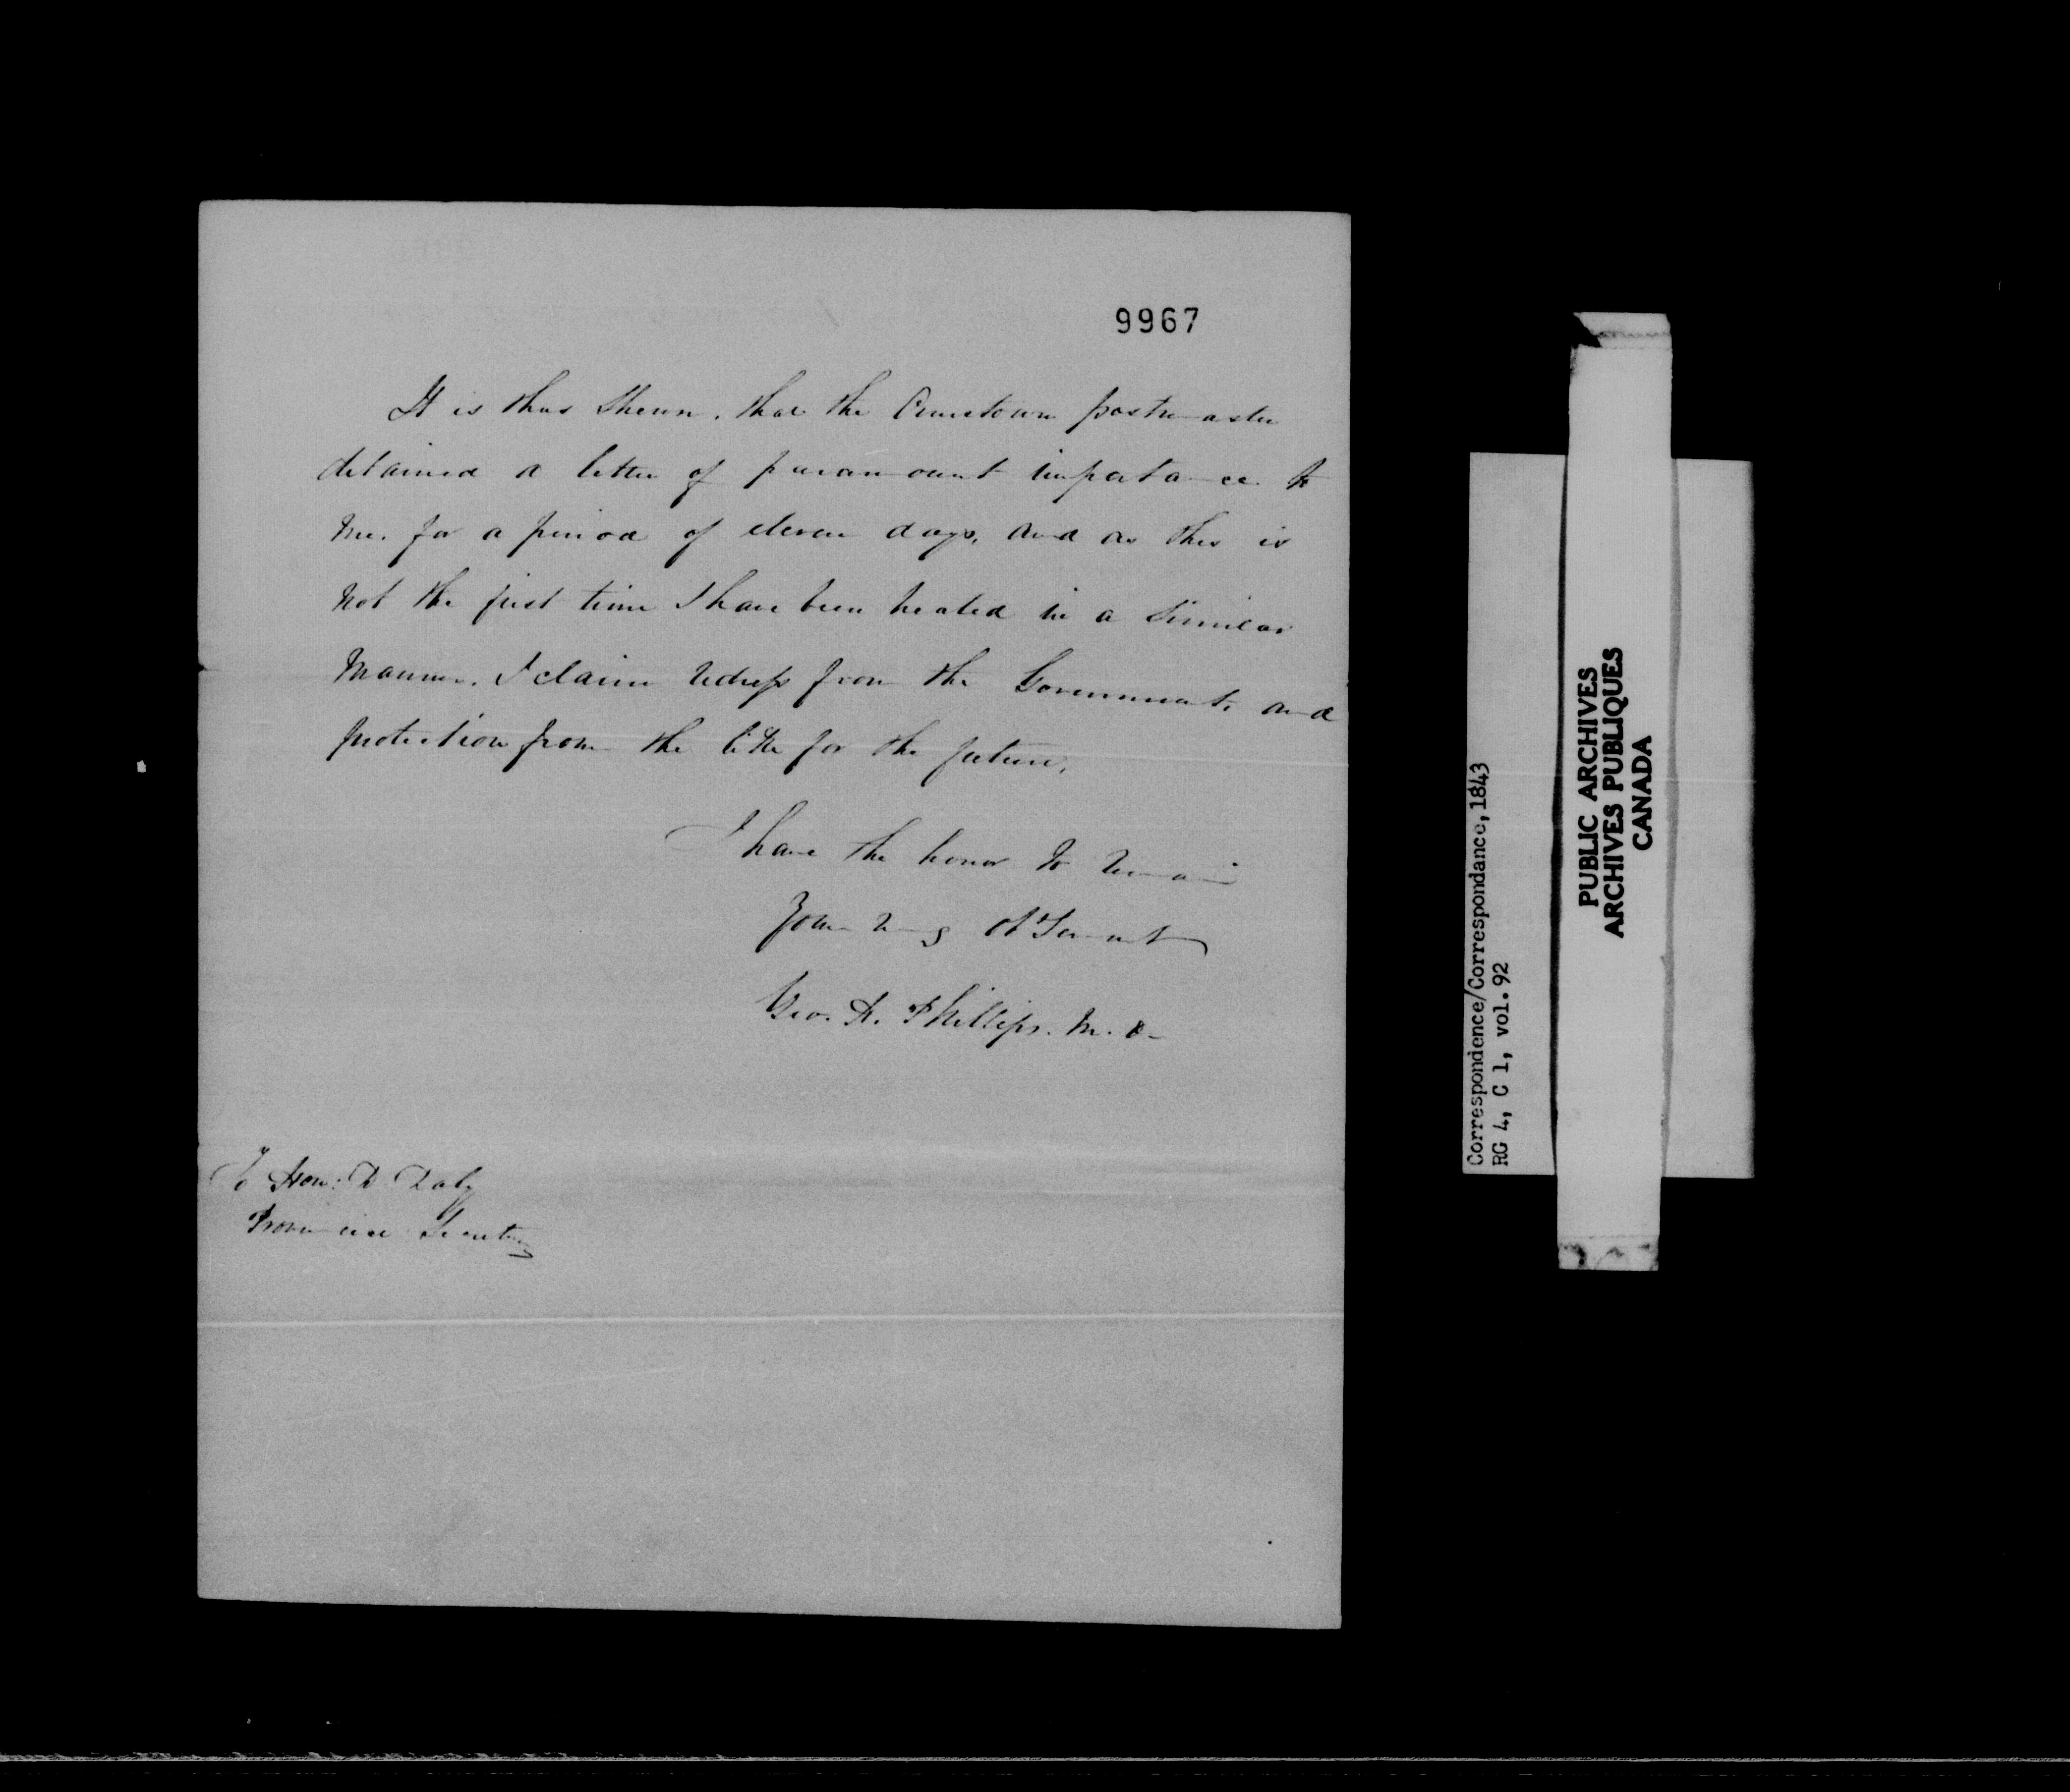 9967
It is thus shewn, that the postmaster
detained a letter of paramount importance to
me, for a period of eleven days, and as this is
not the first time I have been treated in a similar
manner, I claim redress from the Government, and
protection from the like for the future.
I have the honor to remain
Your Obt Servant
Geo. A. Phillips. M. D.
To Hon: D Daly
Provincial Secretary
Correspondence/Correspondance, 1843
RG 4, C 1, vol. 92
PUBLIC ARCHIVES
ARCHIVES PUBLIQUES
CANADA